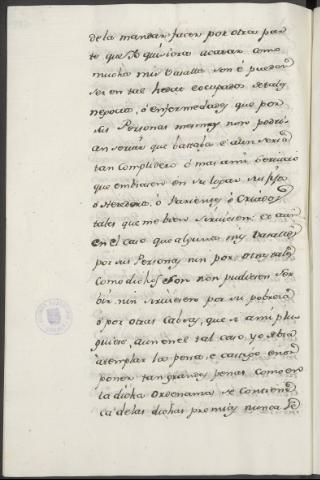 de la mandar facer por otra par
te que Yo quisiera acatar como
muchos mis Vasallos son é pueden
ser en tal hedad é ocupados de tales
negocios, ó enfermedades que por
sus Personas mesmas non podrí-
an servir que bastaba é aun sería
tan complidero á mas ami servicio
que embiasen en su lugar su fijo
ó Heredero, ó Parientes ó Criados
tales que me bien sirviesen: et aun
en el caso que algunos mis Vasallos
por sus Personas nin por otros tales
como dichos son non pudiesen ser-
bir nin sirviesen por su pobreza
ó por otras cabsas, que si ami plu-
guiere, aun en el tal caso yo debia
atemplar la pena, e castigo en
poner tan grandes penas como en
la dicha Ordenanza se contiene
ca de las dichas premias nunca se